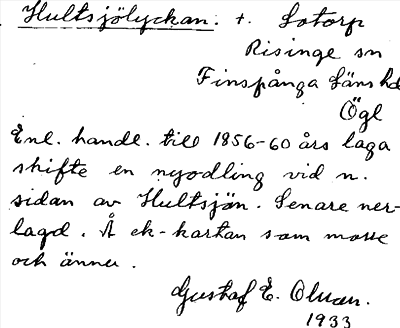 Hultsjölyckan. t. Lotorp
Risinge sn
Finspånga Läns hd
Ögl
Enl. handl. till 1856-60 års laga
skifte en nyodling vid n.
sidan av Hultsjön. Senare ner-
lagd. Å ek-kartan som mosse
och ännu.
Gustaf E. Olsson.
1933